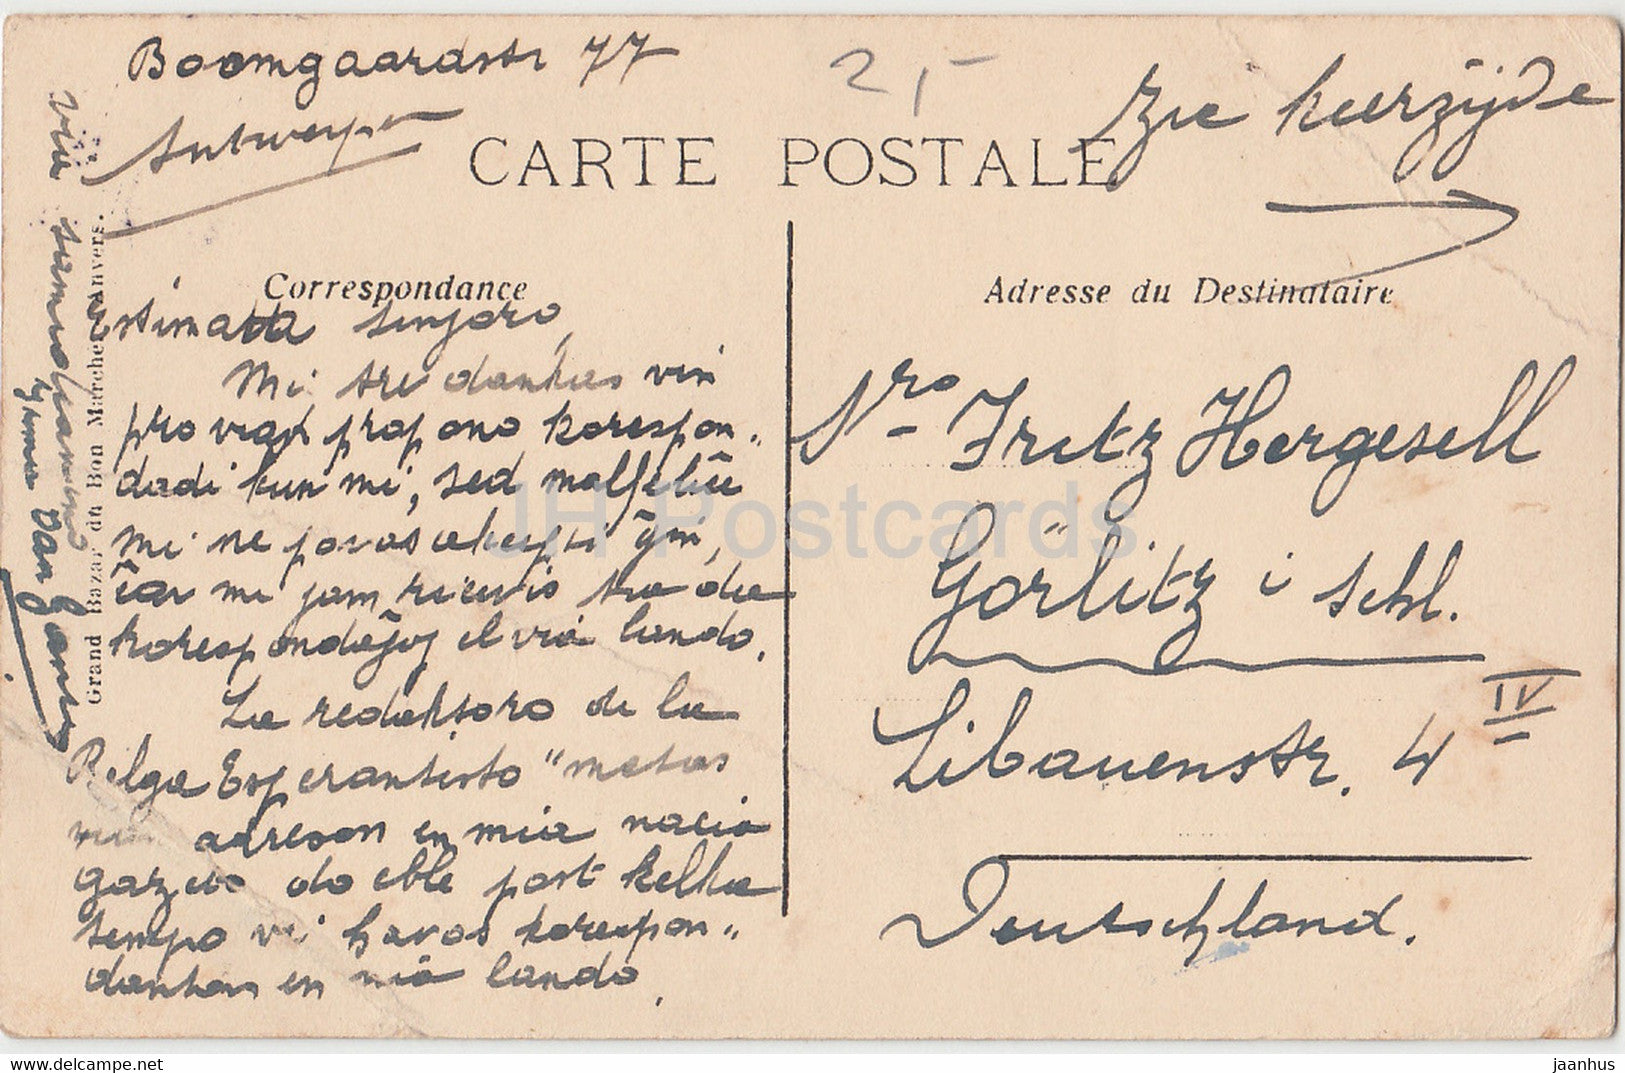 Boomgaardstr 77
Antwerpen
2,-
Zie keerzijde
CARTE POSTALE
Correspondance
Adresse du Destinataire
Estimata sinjoro,
Mi tre dankas vin
pro viaj propono korespon"
dadi kun mi, sed malfeliĉe
mi ne povas akcepti ĝin,
ĉar mi jam ricevis tro da
korespondaĵoj el via lando.
La redaktoro de la
Belga Esperantisto" metas
adreson en mia nacia
gazeto do eble post kelka
tempo vi havos korespon"
danton en nia lando.
via samideanino
van
Grand Bazar du Bon Marché Anvers.
Sro Fritz Hergesell
Görlitz i Schl.
Libauenstr. 4 IV
Deutschland.
JH Postcards
www.delcampe.net
jaanhus